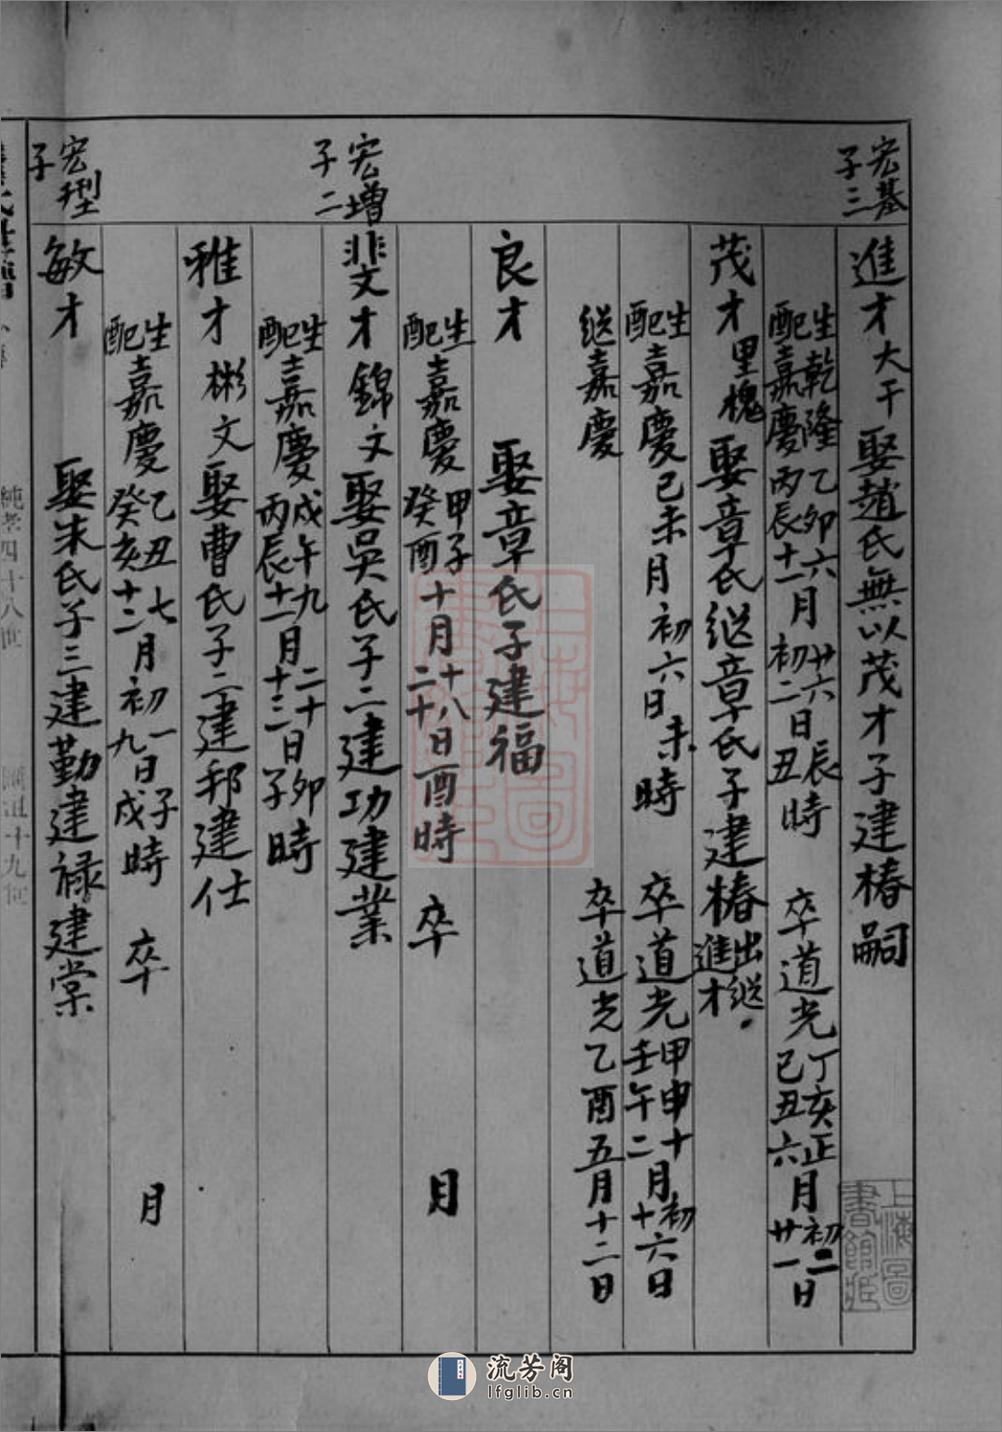 宏基子三
進才 大千 娶趙氏無以茂才子建椿嗣
生乾隆乙卯六月廿六日辰時 卒道光丁亥正月初二日
配嘉慶丙辰十一月初二日丑時 卒道光己丑六月廿一日
茂才 里槐 娶章氏继章氏子建椿出继進才
生嘉慶己未月初六日未時 卒道光甲申十月初六日
配嘉慶 卒道光壬午二月十六日
继嘉慶 卒道光乙酉五月十二日
良才 娶章氏子建福
宏增子二
生嘉慶甲子十月十八日酉時 卒 月
配嘉慶癸酉十月二十日酉時 卒 月
斐才 錦文 娶吳氏子二建功建業
生嘉慶戊午九月二十日卯時
配嘉慶丙辰十一月十三日子時
雅才 彬文 娶曹氏子二建邦建仕
宏型子
生嘉慶乙丑七月初一日子時 卒 月
配嘉慶癸亥十二月初九日戌時 卒 月
敏才 娶朱氏子三建勤建禄建棠
純孝四十八世
上海圖書館藏
流芳阁
lfglib.cn